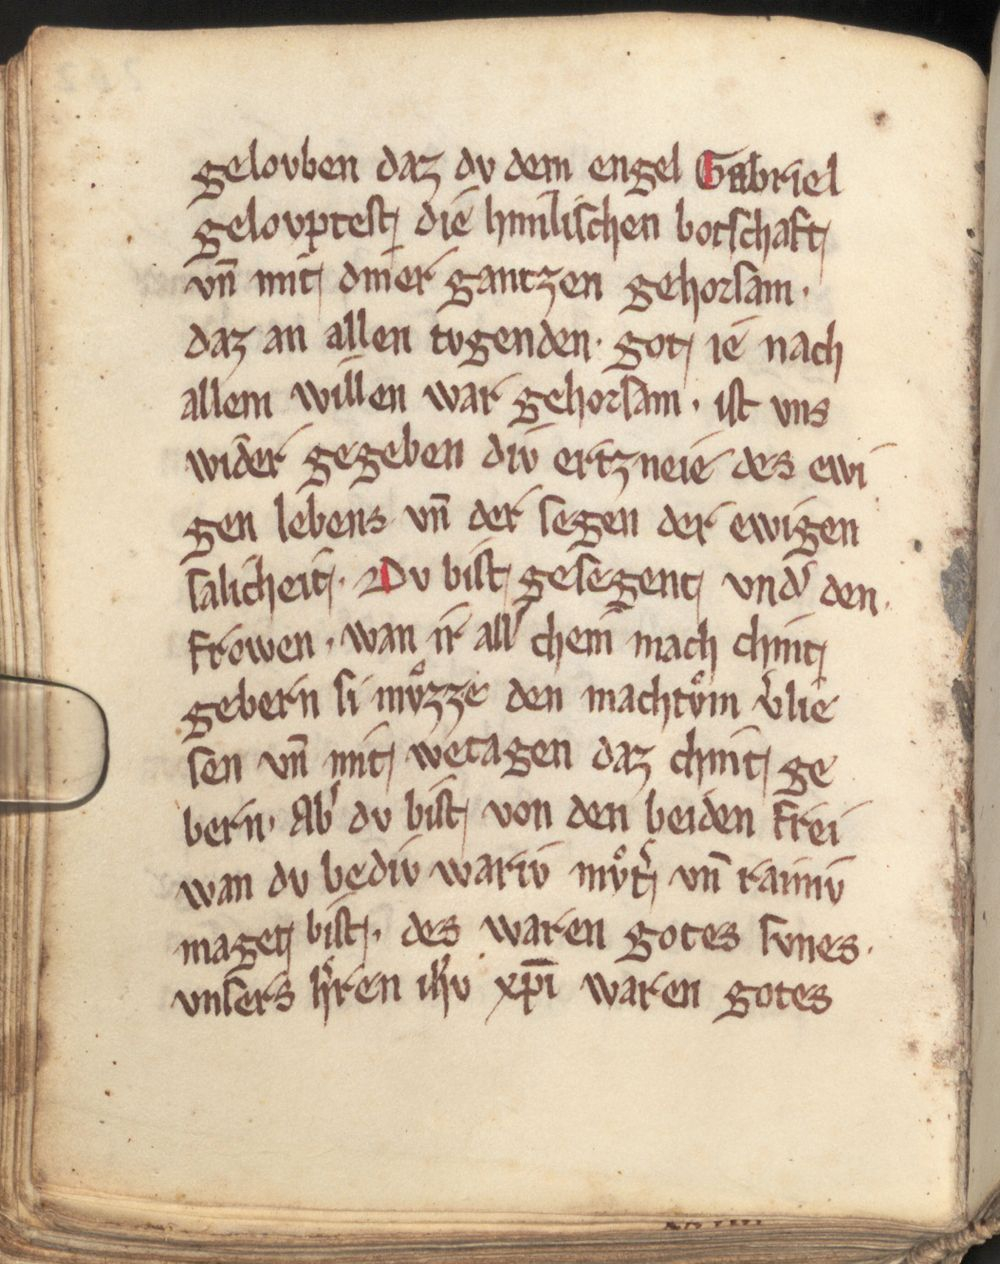 gelovben daz dv dem engel Gabriel
gelovptest die himlischen botschaft
vn̄ mit diner gantzen gehorsam·
daz an allen tvgenden· got ie nach
allem willen war gehorsam· ist vns
wider gegeben div ertzneie des ewi
gen lebens vn̄ der segen der ewigen
salicheit· Dv bist gesegent vnd' den·
frowen· wan ir all' chein mach chint
gebern si mvͦzze den machtvͦm v'lie
sen vn̄ mit wetagen daz chint ge
bern· Ab' dv bist von den beiden frei
wan dv bediv wariv mvͦt' vn̄ rainiv
maget bist· des waren gotes svnes·
vnsers h'ren ih'v xp̄i waren gotes